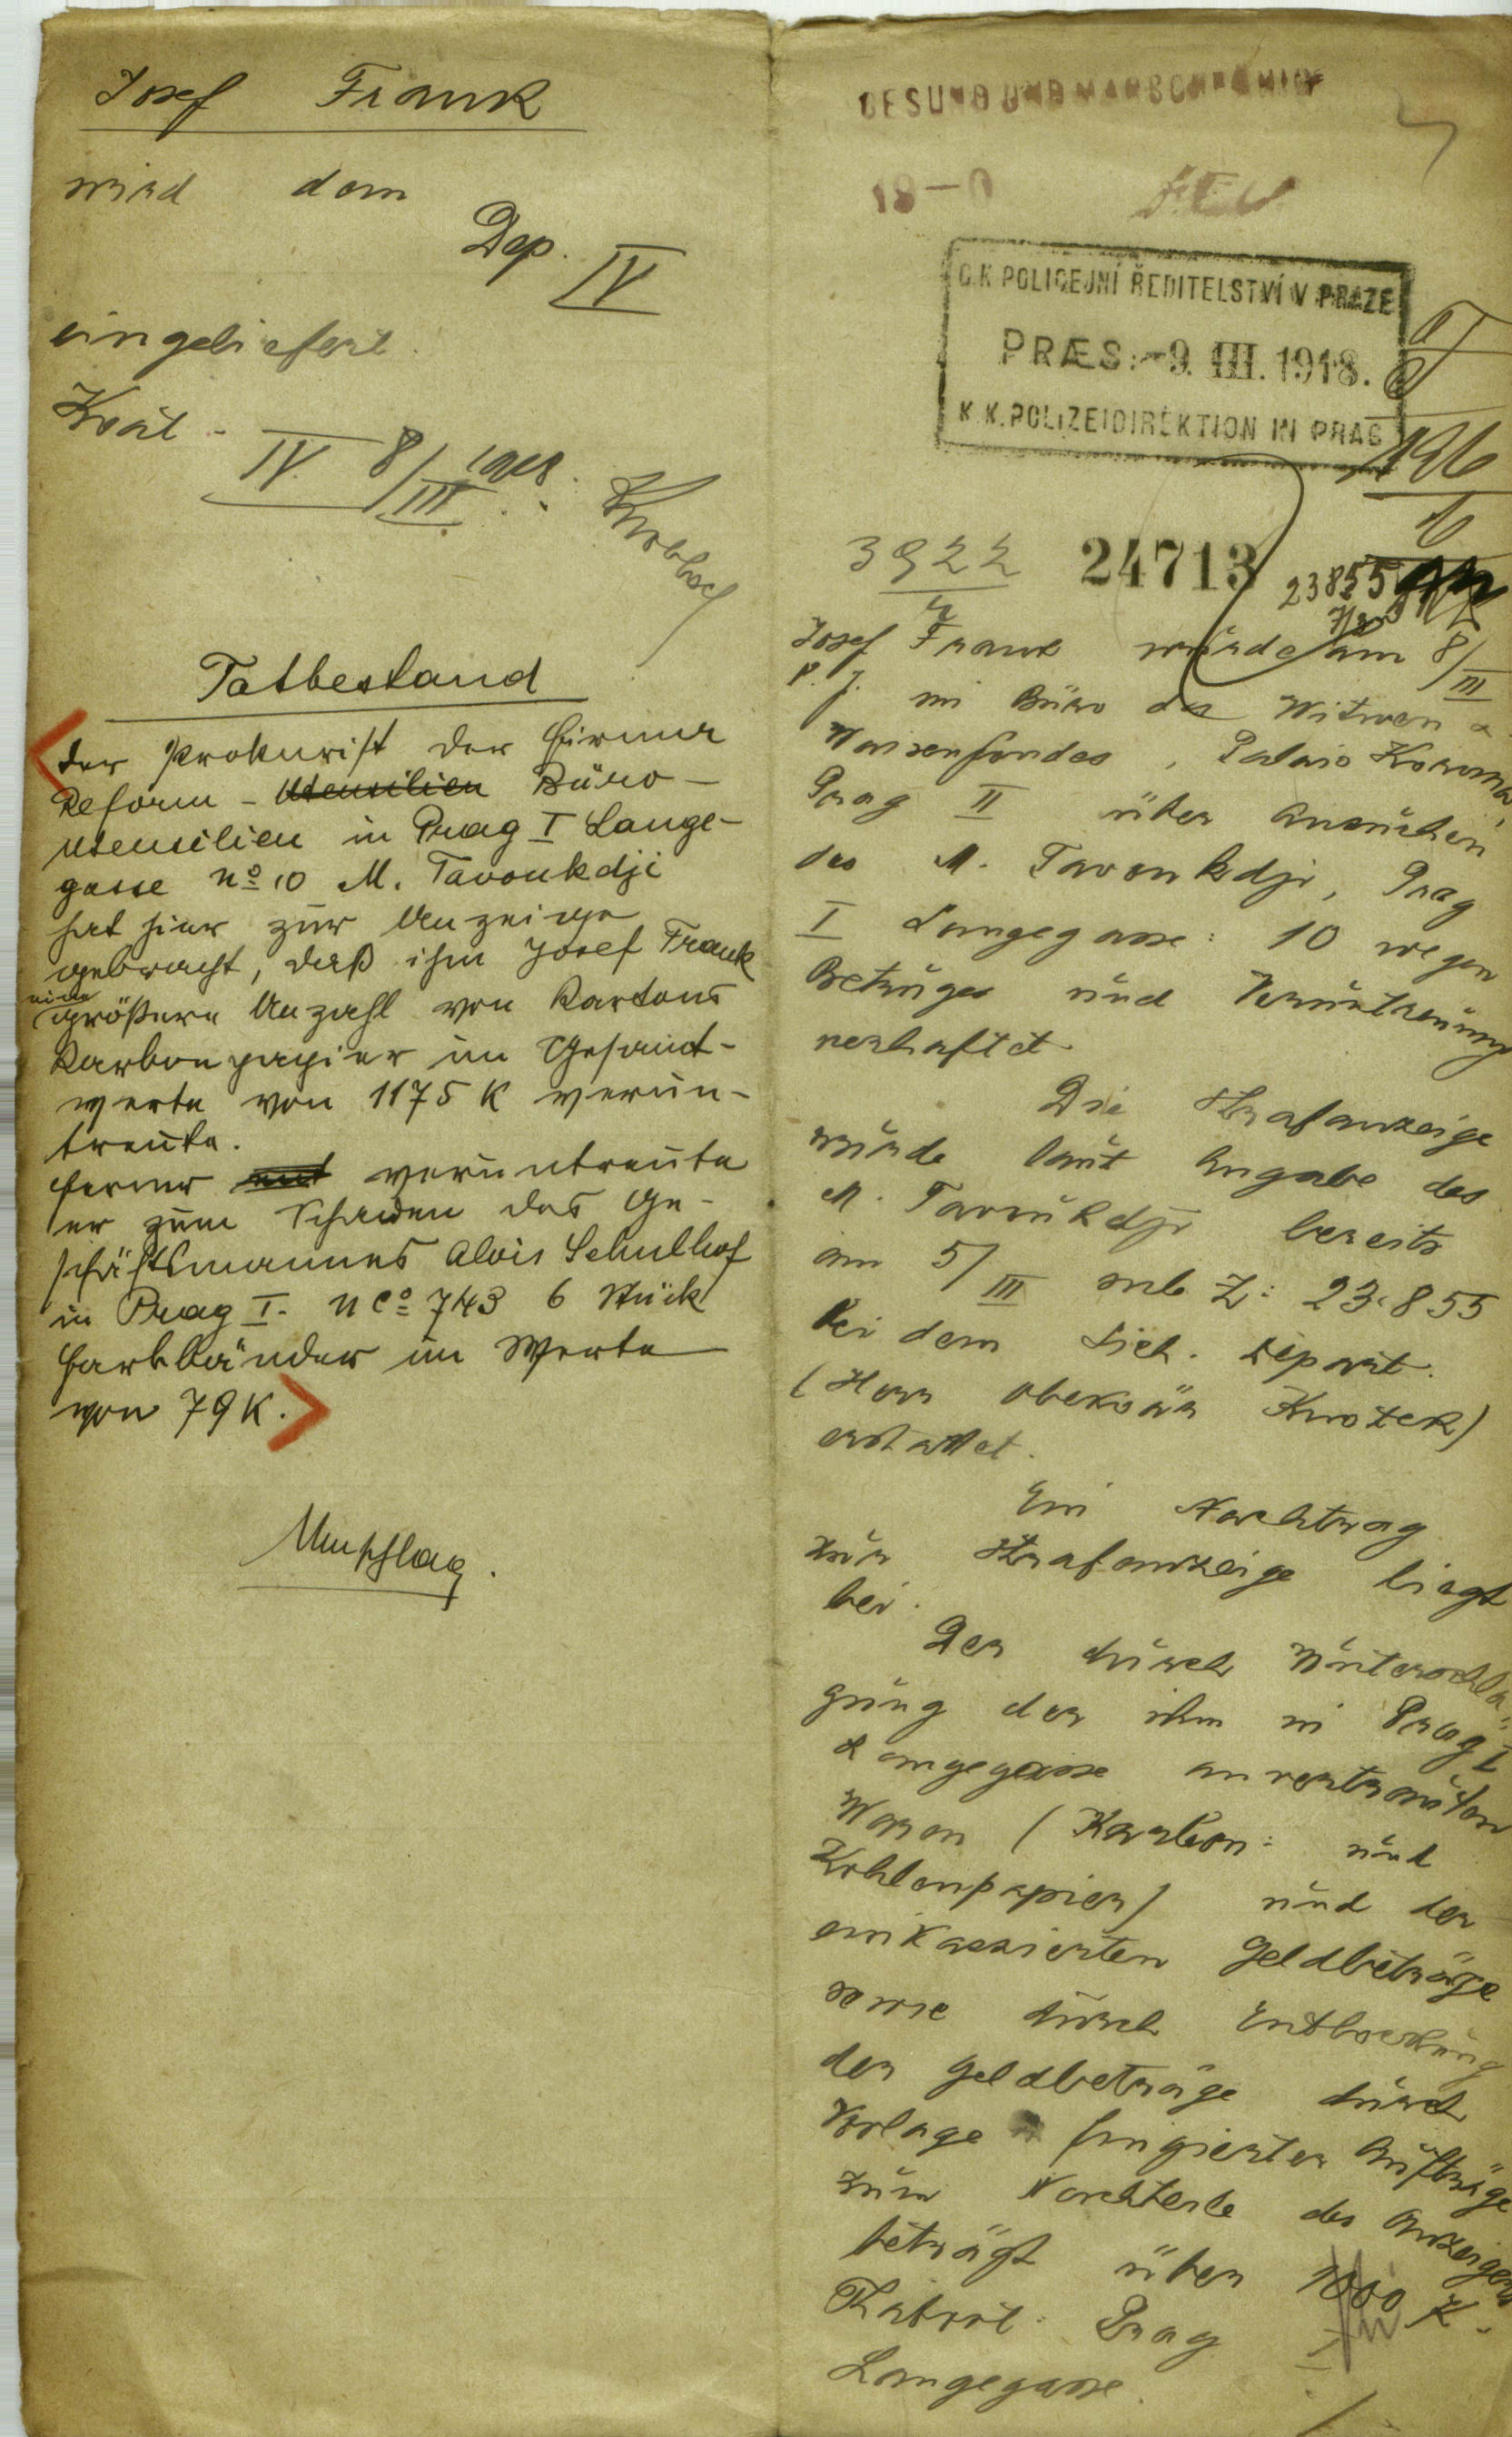 Josef Frank
wird dem
Dep. IV
eingeliefert.
IV 8/III 1918.
Tatbestand
Der Prokurist der Firma
Reform - Utensilien Büro-
utensilien in Prag I Lange-
gasse No 10 M. Tavoukdji
hat hier zur Anzeige
gebracht, daß ihm Josef Frank
eine
größere Anzahl von Kartons
Karbonpapier im Gesamt-
werte von 1175 K verun-
treute.
Ferner veruntreute
er zum Schaden des Ge-
schäftsmannes Alois Schulhof
in Prag I. NCo 743 6 Stück
Farbbänder im Werte
von 79 K.
Umschlag.
GESUND UND MARSCHFÄHIG
18-0
C.K POLICEJNÍ ŘEDITELSTVÍ V PRAZE
PRÆS: -9. III. 1918.
K.K. POLIZEIDIREKTION IN PRAG
3922 24713 23855
Josef Frank wurde am 8/III
l. J. im Büro des Witwen u.
Waisenfondes, Palais
Prag II über Ansuchen
des M. Tavoukdji, Prag
I Langegasse: 10 wegen
Betruges und Veruntreuung
verhaftet.
Die Strafanzeige
wurde laut Angabe des
M. Tavoukdji bereits
am 5/III sub Z: 23.855
bei dem Sich. Depart.
(Herr Oberkoär Knotek)
erstattet.
Ein Nachtrag
zur Strafanzeige liegt
bei.
Der durch Unterschla-
gung der ihm in Prag I
Langegasse anvertrauten
Waren (Karbon: und
Kohlenpapier) und der
einkassierten Geldbeträge
sowie durch Entlockung
der Geldbeträge durch
Vorlage fingierter Aufträge
zum Nachteile des Anzeigers
beträgt über 1000 K.
Tatort: Prag I
Langegasse.